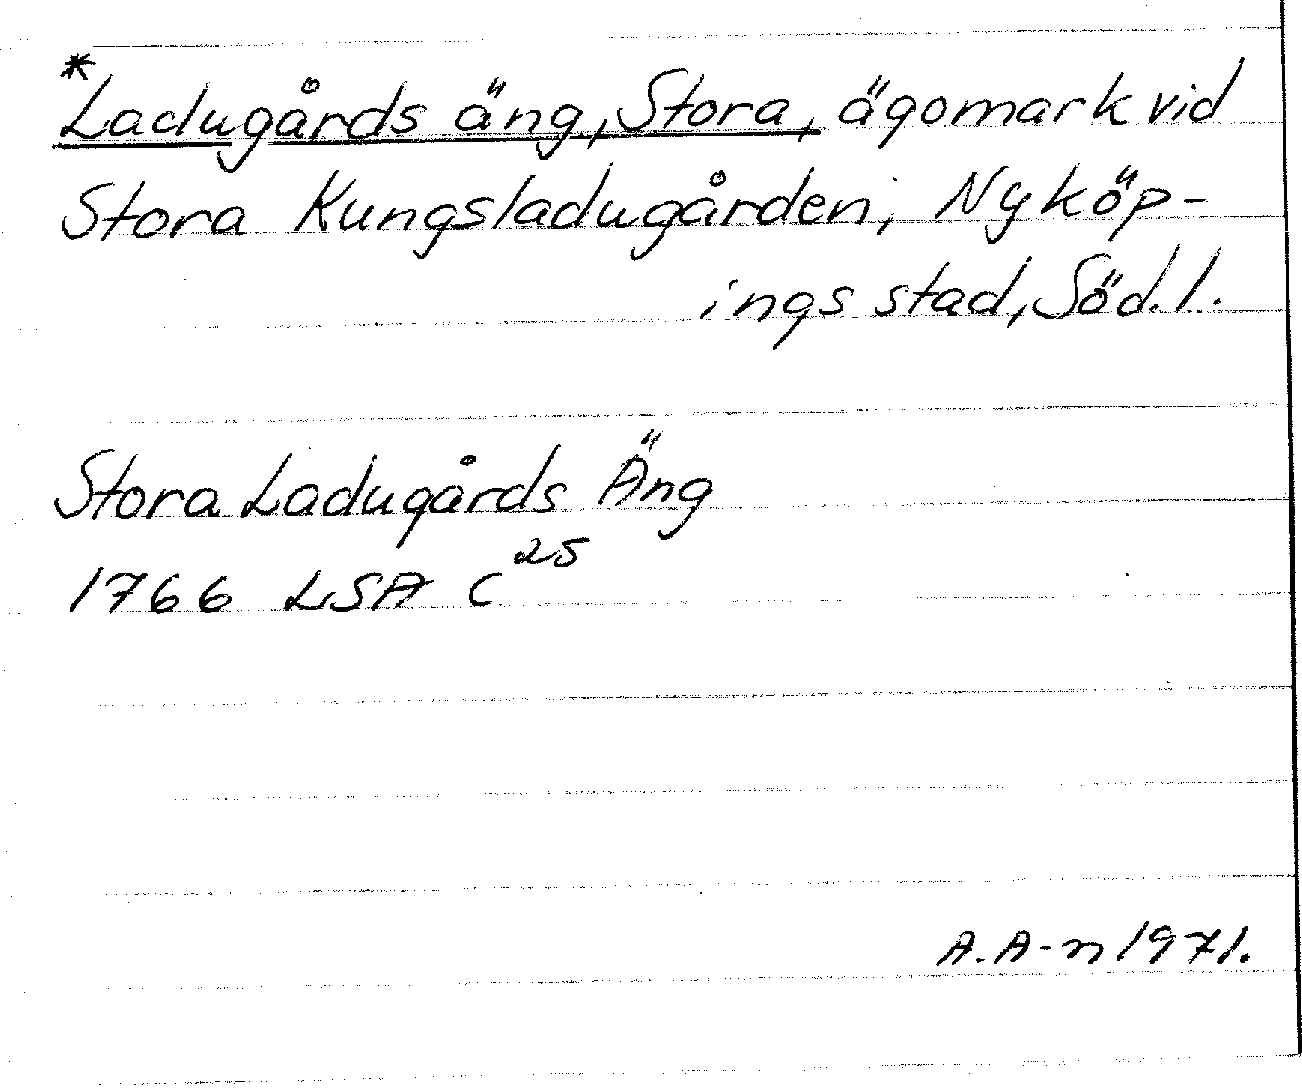 *Ladugårds äng, Stora, ägomark vid
Stora Kungsladugården, Nyköp-
ings stad, Söd.l.
Stora Ladugårds Äng
1766 LSA C²⁵
A.A-n 1971.